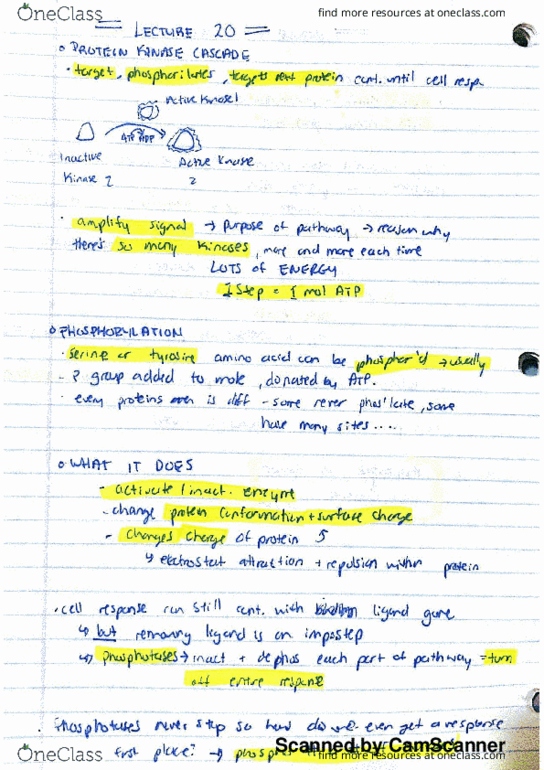 OneClass
find more resources at oneclass.com
LECTURE 20
PROTEIN KINASE CASCADE
target, phosphorilates, targets next protein cont. until cell resp.
Active Kinase 1
ATP ADP
Inactive
Active Kinase
Kinase 2
2
amplify signal → purpose of pathway → reason why
there's so many kinases, more and more each time
LOTS OF ENERGY
1 Step = 1 mol ATP
PHOSPHORYLATION
serine or tyrosine amino acid can be phosphor'd → usually
- P group added to mole, donated by ATP.
every proteins is diff - some never phos'late, some
have many sites ....
WHAT IT DOES
- activate/inact. enzyme
- change protein conformation + surface charge
- changes charge of protein
↳ electrostat attraction + repulsion within protein
cell response can still cont. with ligand gone
↳ but removing ligand is an imp step
↳ phosphotases → inact + dephos each part of pathway = turn
off entire response
Phosphotases never stop so how do we even get a response
first place? →
Scanned by CamScanner
OneClass
find more resources at oneclass.com